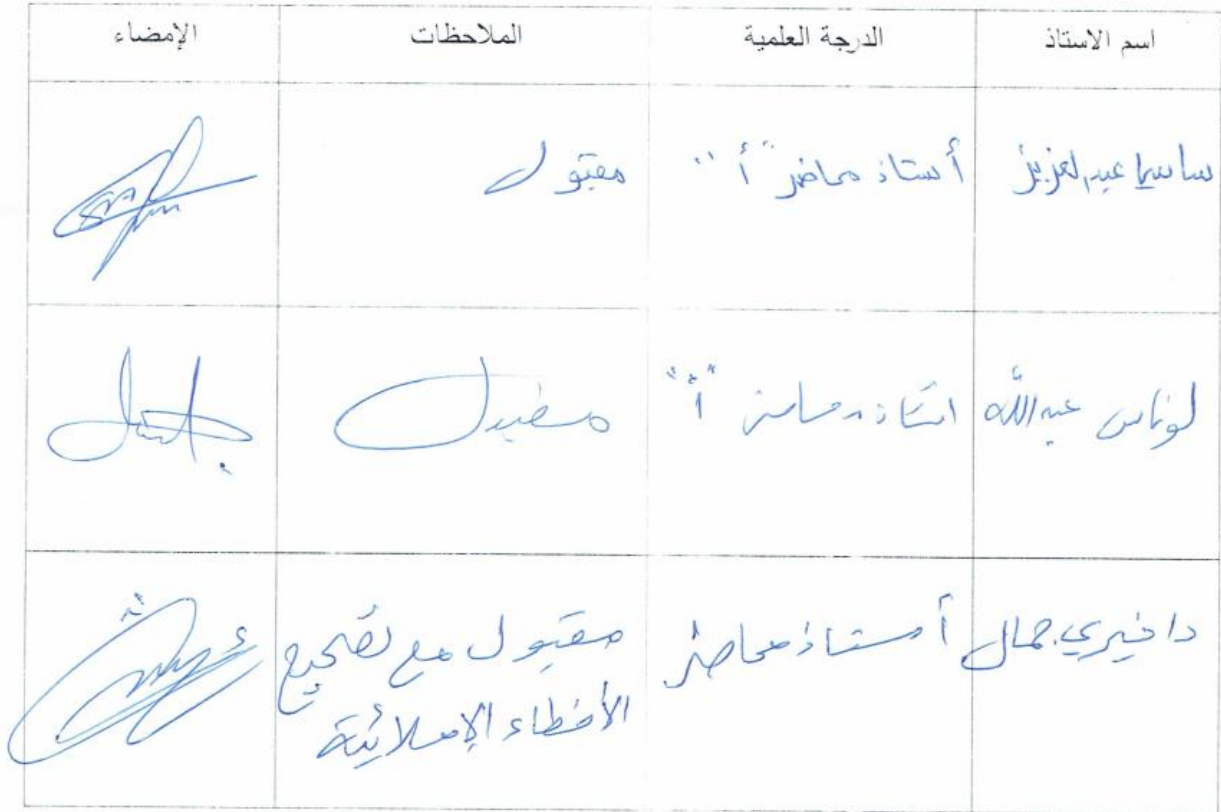 اسم الاستاذ الدرجة العلمية الملاحظات الإمضاء
ساسي عبد العزيز أستاذ محاضر "أ" مقبول
لوناس عبد الله استاذ محاضر "أ" مقبول
دافيري جمال أستاذ محاضر مقبول مع تصحيح
الأخطاء الإملائية